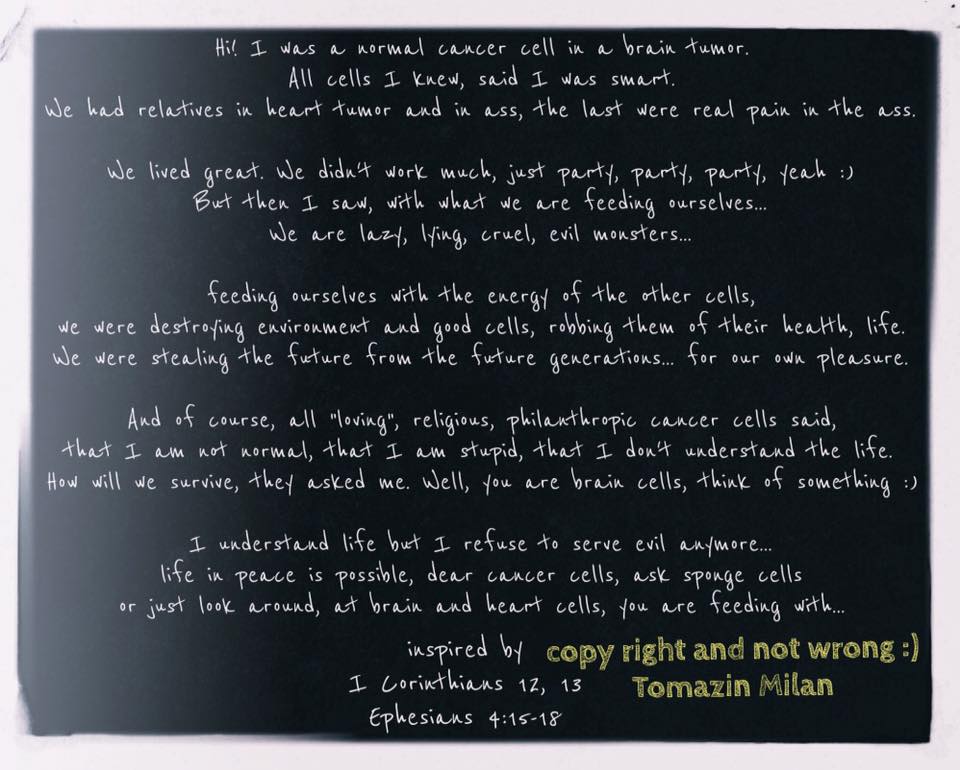 Hi! I was a normal cancer cell in a brain tumor.
All cells I knew, said I was smart.
We had relatives in heart tumor and in ass, the last were real pain in the ass.
We lived great. We didn't work much, just party, party, party, yeah :)
But then I saw, with what we are feeding ourselves...
We are lazy, lying, cruel, evil monsters...
feeding ourselves with the energy of the other cells,
we were destroying environment and good cells, robbing them of their health, life.
We were stealing the future from the future generations... for our own pleasure.
And of course, all "loving", religious, philanthropic cancer cells said,
that I am not normal, that I am stupid, that I don't understand the life.
How will we survive, they asked me. Well, you are brain cells, think of something :)
I understand life but I refuse to serve evil anymore...
life in peace is possible, dear cancer cells, ask sponge cells
or just look around, at brain and heart cells, you are feeding with...
inspired by
I Corinthians 12, 13
Ephesians 4:15-18
copy right and not wrong :)
Tomazin Milan